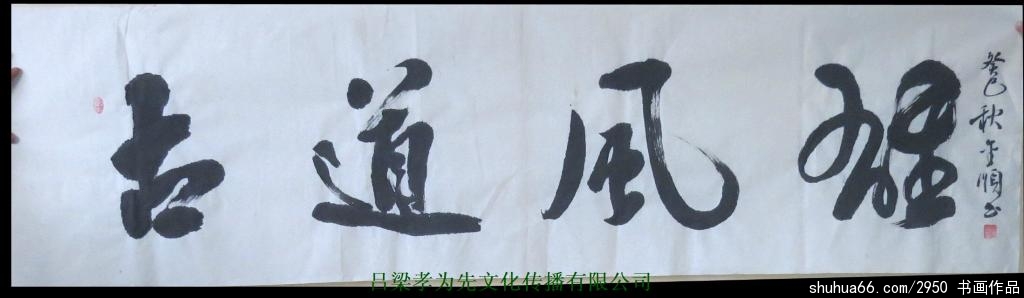 古道風雄
癸巳秋金順书
吕梁孝为先文化传播有限公司
shuhua66.com/2950 书画作品